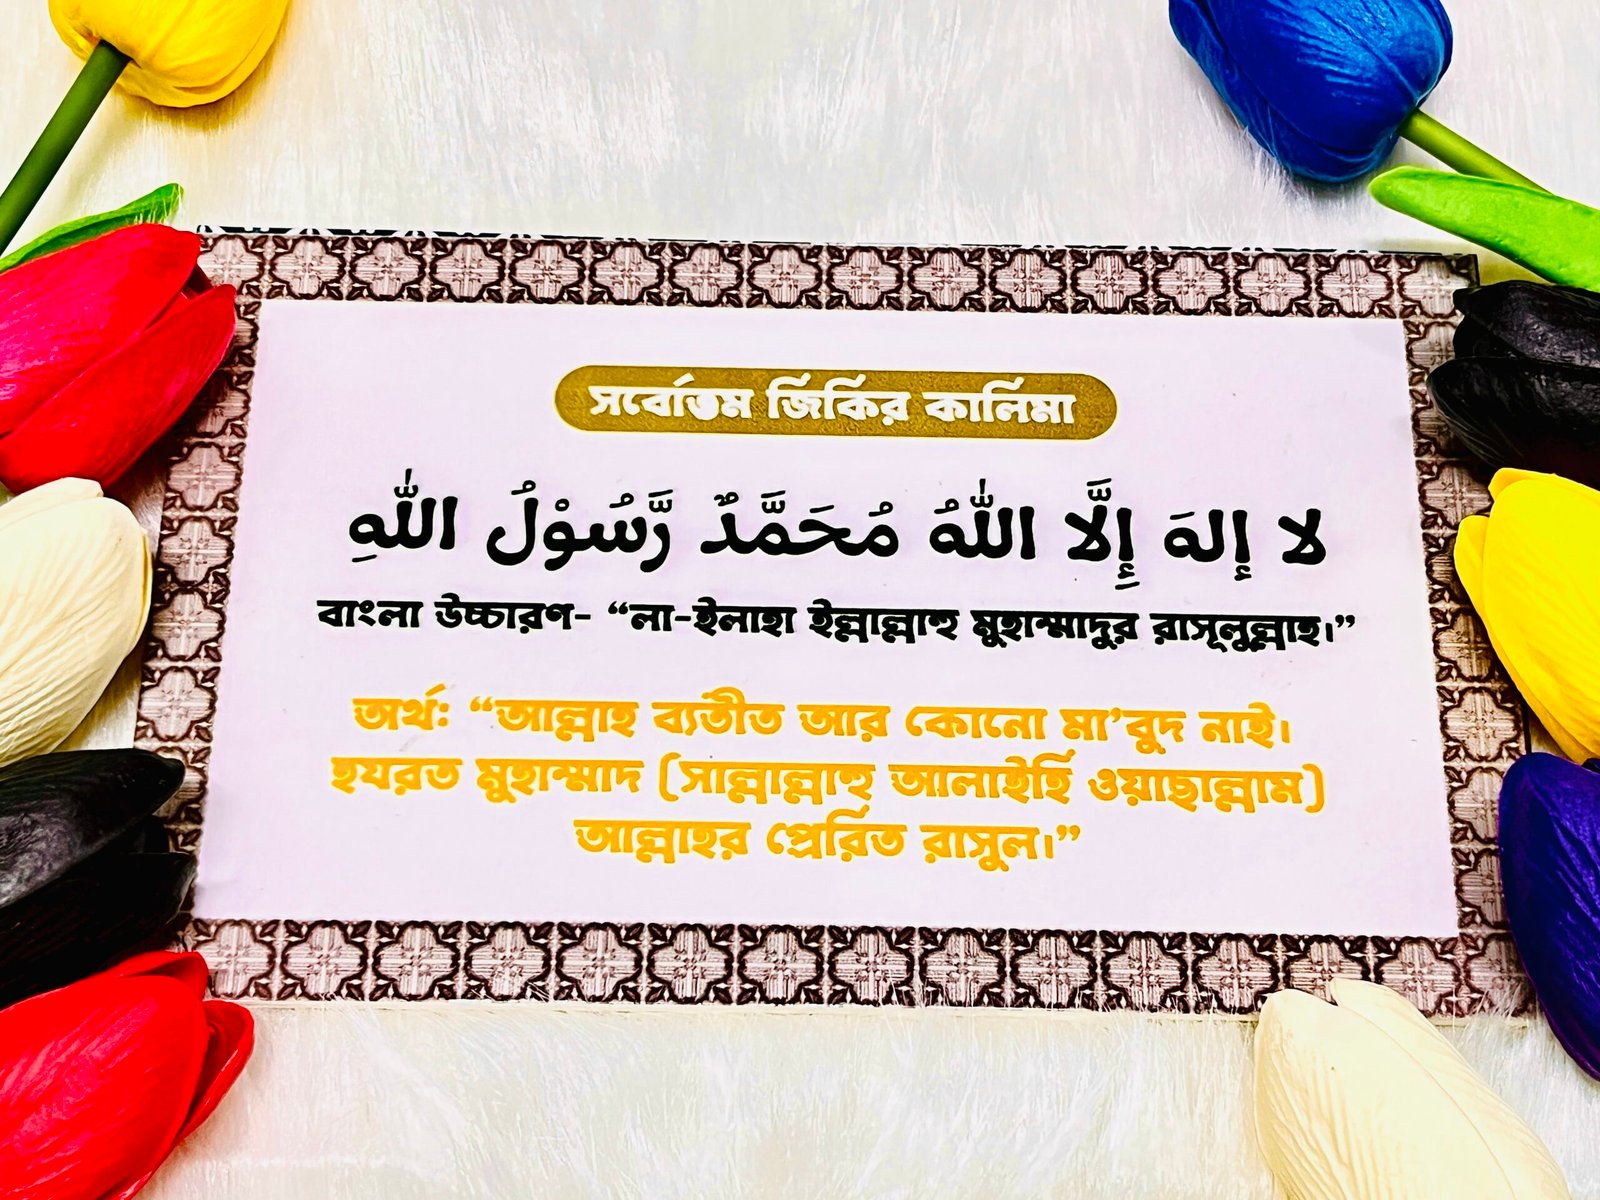 সর্বোত্তম জিকির কালিমা
لا إلهَ إِلَّا اللّٰهُ مُحَمَّدٌ رَّسُوْلُ اللّٰهِ
বাংলা উচ্চারণ- “লা-ইলাহা ইল্লাল্লাহু মুহাম্মাদুর রাসূলুল্লাহ।”
অর্থ: “আল্লাহ ব্যতীত আর কোনো মা’বুদ নাই।
হযরত মুহাম্মাদ (সাল্লাল্লাহু আলাইহি ওয়াছাল্লাম)
আল্লাহর প্রেরিত রাসুল।”